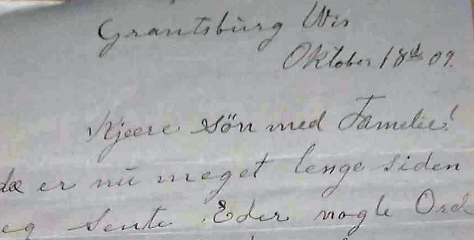 Grantsburg Wis
Oktober 18d 09.
Kjære sön med Famelie!
dæ er nu meget lenge siden
eg sente Eder nogle Ord